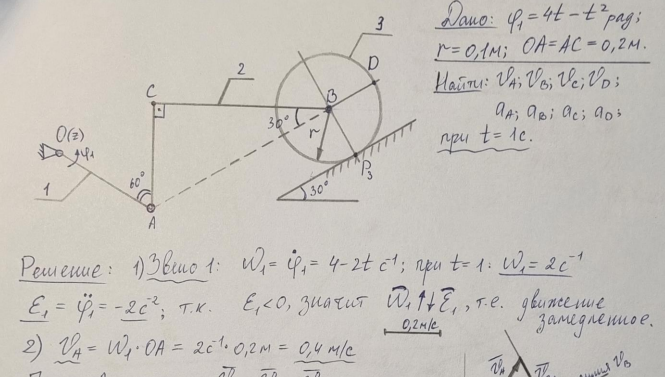 Дано: φ₁ = 4t − t² рад;
r = 0,1м; OA = AC = 0,2м.
Найти: V_A; V_B; V_C; V_D;
a_A; a_B; a_C; a_D;
при t = 1с.
3
2
D
C
B
30°
r
O(z)
φ₁
60°
1
P₃
30°
A
Решение: 1) Звено 1: ω₁ = φ̇₁ = 4 − 2t с⁻¹; при t = 1: ω₁ = 2с⁻¹
ε₁ = φ̈₁ = −2с⁻²; т.к. ε₁ < 0, значит ω̄₁ ↑↓ ε̄₁, т.е. движение
замедленное.
0,2м/с
2) V_A = ω₁·OA = 2с⁻¹·0,2м = 0,4 м/с